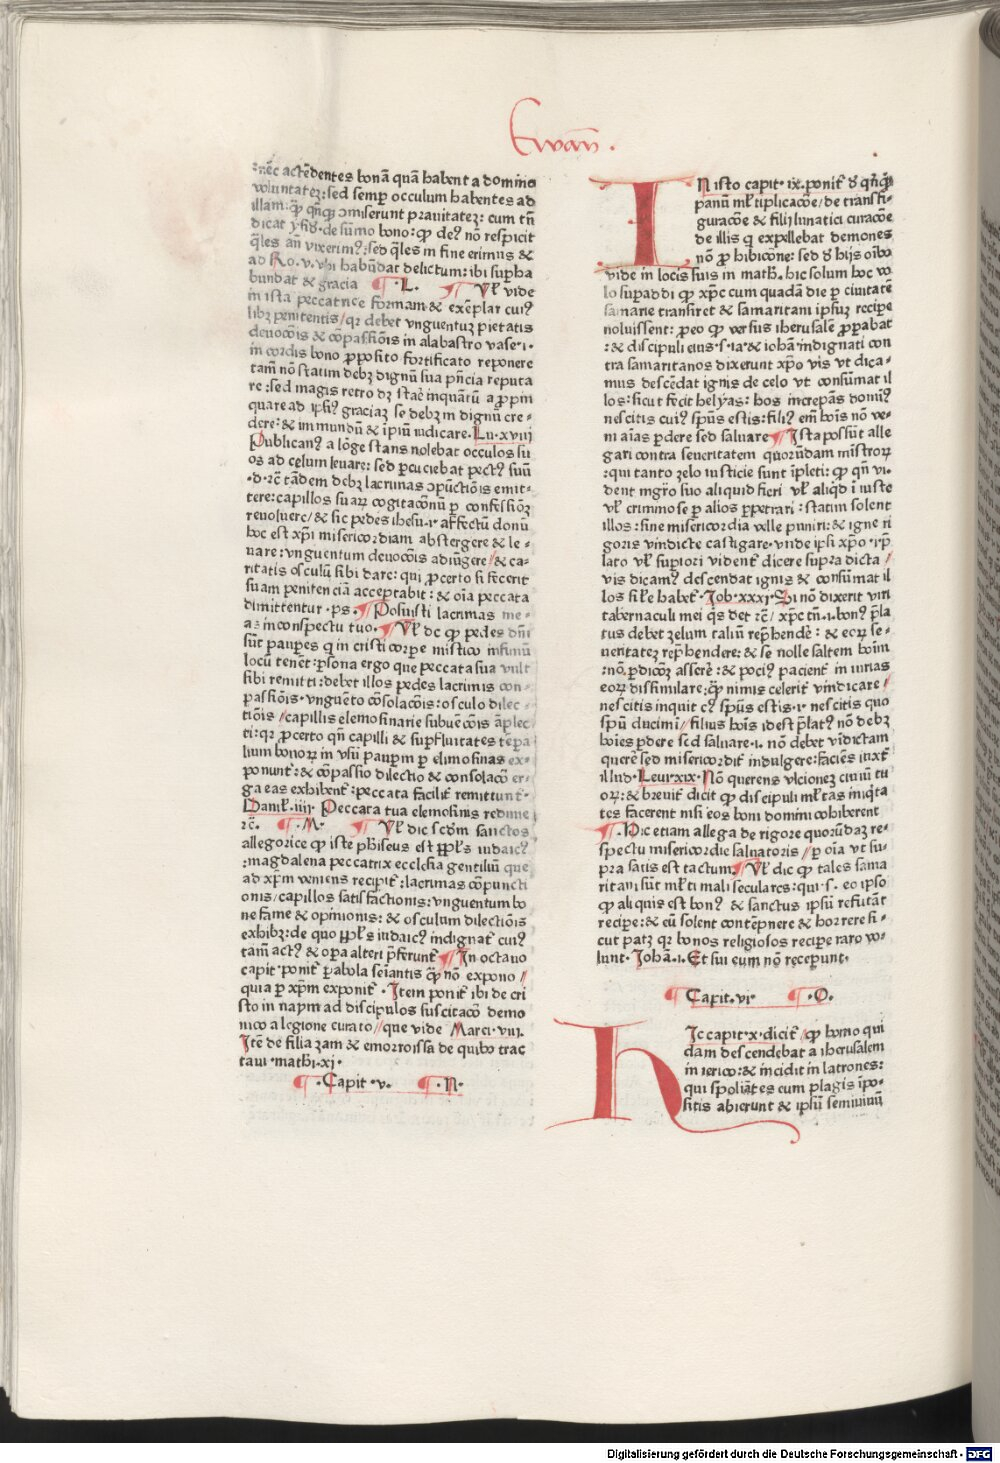 Ewan̄.
nec actēdentes bonā quā habent a domino
voluntatez: sed semp occulum habentes ad
illam: qꝫ qn̄qꝫ ꝯmiserunt prauitatez: cum tn̄
bundat & gracia ¶ .L. ¶ Vl̄ vide
in ista peccatrice formam & exēplar cui9
libꝫ penitentis/ qꝛ debet vnguentuꝫ pietatis
deuocōis & cōpassiōis in alabastro vase .i.
in cordis bono ꝓposito fortificato reponere
tam̄ nō statim debꝫ dignū sua pn̄cia reputa
re: sed magis retro
quare ad ipsi9 graciaꝫ se debꝫ indignū cre-
dere: & immundū & īpiū iudicare. Lu.xviij
Publican9 a lōge stans nolebat occulos su
os ad celum leuare: sed pcuciebat pect9 suū
.d.rē tādem debꝫ lacrimas ꝯpūctiōis emit-
tere: capillos suaꝝ cogitacōnū p confessiōꝫ
reuoluere/ & sic pedes ihesu .i. affectū donū
hoc est xp̄i misericordiam abstergere & le-
uare: vnguentum deuocōis adiūgere/ & ca-
ritatis osculū sibi dare: qui ꝓcerto si fecerit
suam penitenciā acceptabit: & oīa peccata
dimittentur. ps. ¶ Posuisti lacrimas me-
as in conspectu tuo. ¶ Vl̄ dc̄ qꝫ pedes dn̄i
sūt paupes q in cristi corpe mistico infimū
locū tenēt: psona ergo que peccata sua vult
sibi remitti: debet illos pedes lacrimis con-
passiōis. vnguēto cōsolacōis: osculo dilec-
tiōis/ capillis elemosinarie subuēcōis āplec
ti: qꝛ ꝓcerto qn̄ capilli & supfluitates tēpa
lium bonoꝝ in vsū paupm p elimosinas ex-
ponunt᷑: & cōpassio dilectio & consolacō er-
ga eas exhibent᷑: peccata facilit᷑ remittunt᷑.
Daniel. iiij. Peccata tua elemosinis redime
rē. ¶ .M. ¶ Vl̄ dic scd̄m sanctos
allegorice qꝫ iste phīseus est ppl̄s iudaic9
: magdalena peccatrix ecclesia gentiliū que
ad xp̄m veniens recipit᷑: lacrimas cōpuncti
onis/ capillos satisfactionis: vnguentum bo
ne fame & opinionis: & osculum dilectiōis
exhibꝫ: de quo ppl̄s iudaic9 indignat᷑ cui9
tam̄ act9 & opa alteri pferunt᷑ ¶ In octauo
capit᷑ ponit᷑ pabola semantis qꝫ nō expono/
quia p xp̄m exponit᷑. Item ponit᷑ ibi de cri
sto in naym ad discipulos suscitacō demo
niaco a legione curato/ que vide Marci.viij.
Itē de filia zam & emorroissa de quibꝰ trac
taui. math.xi.
¶ .Capit. v. ¶ .N.
IN isto capit. ix. ponit᷑ de qn̄qꝫ
panū ml̄tiplicacōe/ de transfi-
guracōe & filij lunatici curacōe
de illis q expellebat demones
vide in locis suis in math. hic solum hoc vo
lo supaddi qꝫ xp̄c cum quadā die p ciuitatē
samarie transiret & samaritani ipsuꝫ recipe
noluissent: ꝓ eo qꝫ versus iherusalē ꝓpabat
: & discipuli eius .s. ia. & iohā. indignati con
tra samaritanos dixerunt xp̄o vis vt dica-
mus descēdat ignis de celo vt consūmat il
los: sicut fecit helyas: hos increpās domin9
nescitis cui9 spūs estis: fili9 em̄ hoīs nō ve-
nit aīas pdere sed saluare ¶ Ista possūt alle
gari contra seueritatem quorūdam mīstroꝝ
: qui tanto zelo iusticie sunt īpleti: qꝫ qn̄ vi-
dent mgr̄o suo aliquid fieri vl̄ aliqd ī iuste
vl̄ crimmose p alios ppetrari: statim solent
illos: sine misericordia velle puniri: & igne ri
goris vindicte castigare. vnde ipsi xp̄o
lato vl̄ supiori vident᷑ dicere supra dicta/
vis dicam9 descendat ignis & consūmat il
los sil̄e habet᷑. Job.xxxi. Si nō dixerit viri
tabernaculi mei qs det rē/ xp̄c tn̄ .i. bon9 pla
tus debet zelum taliū rephēdē: & eoꝝ se-
ueritatez rephendere: & se nolle saltem hoīm
: nō pdicoꝫ asserē: & poci9 pacient᷑ iniurias
eoꝝ dissimilare: qꝫ nimis celerit᷑ vindicare/
nescitis inquit c9 spūs estis .i. nescitis quo
spū ducimī/ filius hoīs id est plat9 nō debꝫ
hoīes pdere sed saluare .i. nō debet vīdictam
querē sed misericordit᷑ indulgere: faciēs iuxt᷑
illud. Leui.xix. Nō querens vlcionez ciuiū tu
oꝝ: & breuit᷑ dicit qꝫ discipuli ml̄tas iniqta
tes facerent nisi eos boni domini cohiberent
¶ Hic etiam allega de rigore quorūdaꝫ re-
spectu misericordie saluatoris/ p oīa vt su-
pra satis est tactum. ¶ Vl̄ dic qꝫ tales sama
ritani sūt ml̄ti mali seculares: qui .s. eo ipso
qꝫ aliquis est bon9 & sanctus ipsū refutāt
recipe: & eū solent contēpnere & horrere si-
cut patꝫ qꝛ bonos religiosos recipe raro vo-
lunt. Johā.i. Et sui eum nō receperunt.
¶ Capit. vi. ¶ .O.
HIc capit. x. dicit᷑/ qꝫ homo qui
dam descendebat a iherusalem
in ierico: & incidit in latrones:
qui spoliātes eum plagis īpo-
sitis abierunt & ipsū semiuiuū
Digitalisierung gefördert durch die Deutsche Forschungsgemeinschaft - DFG